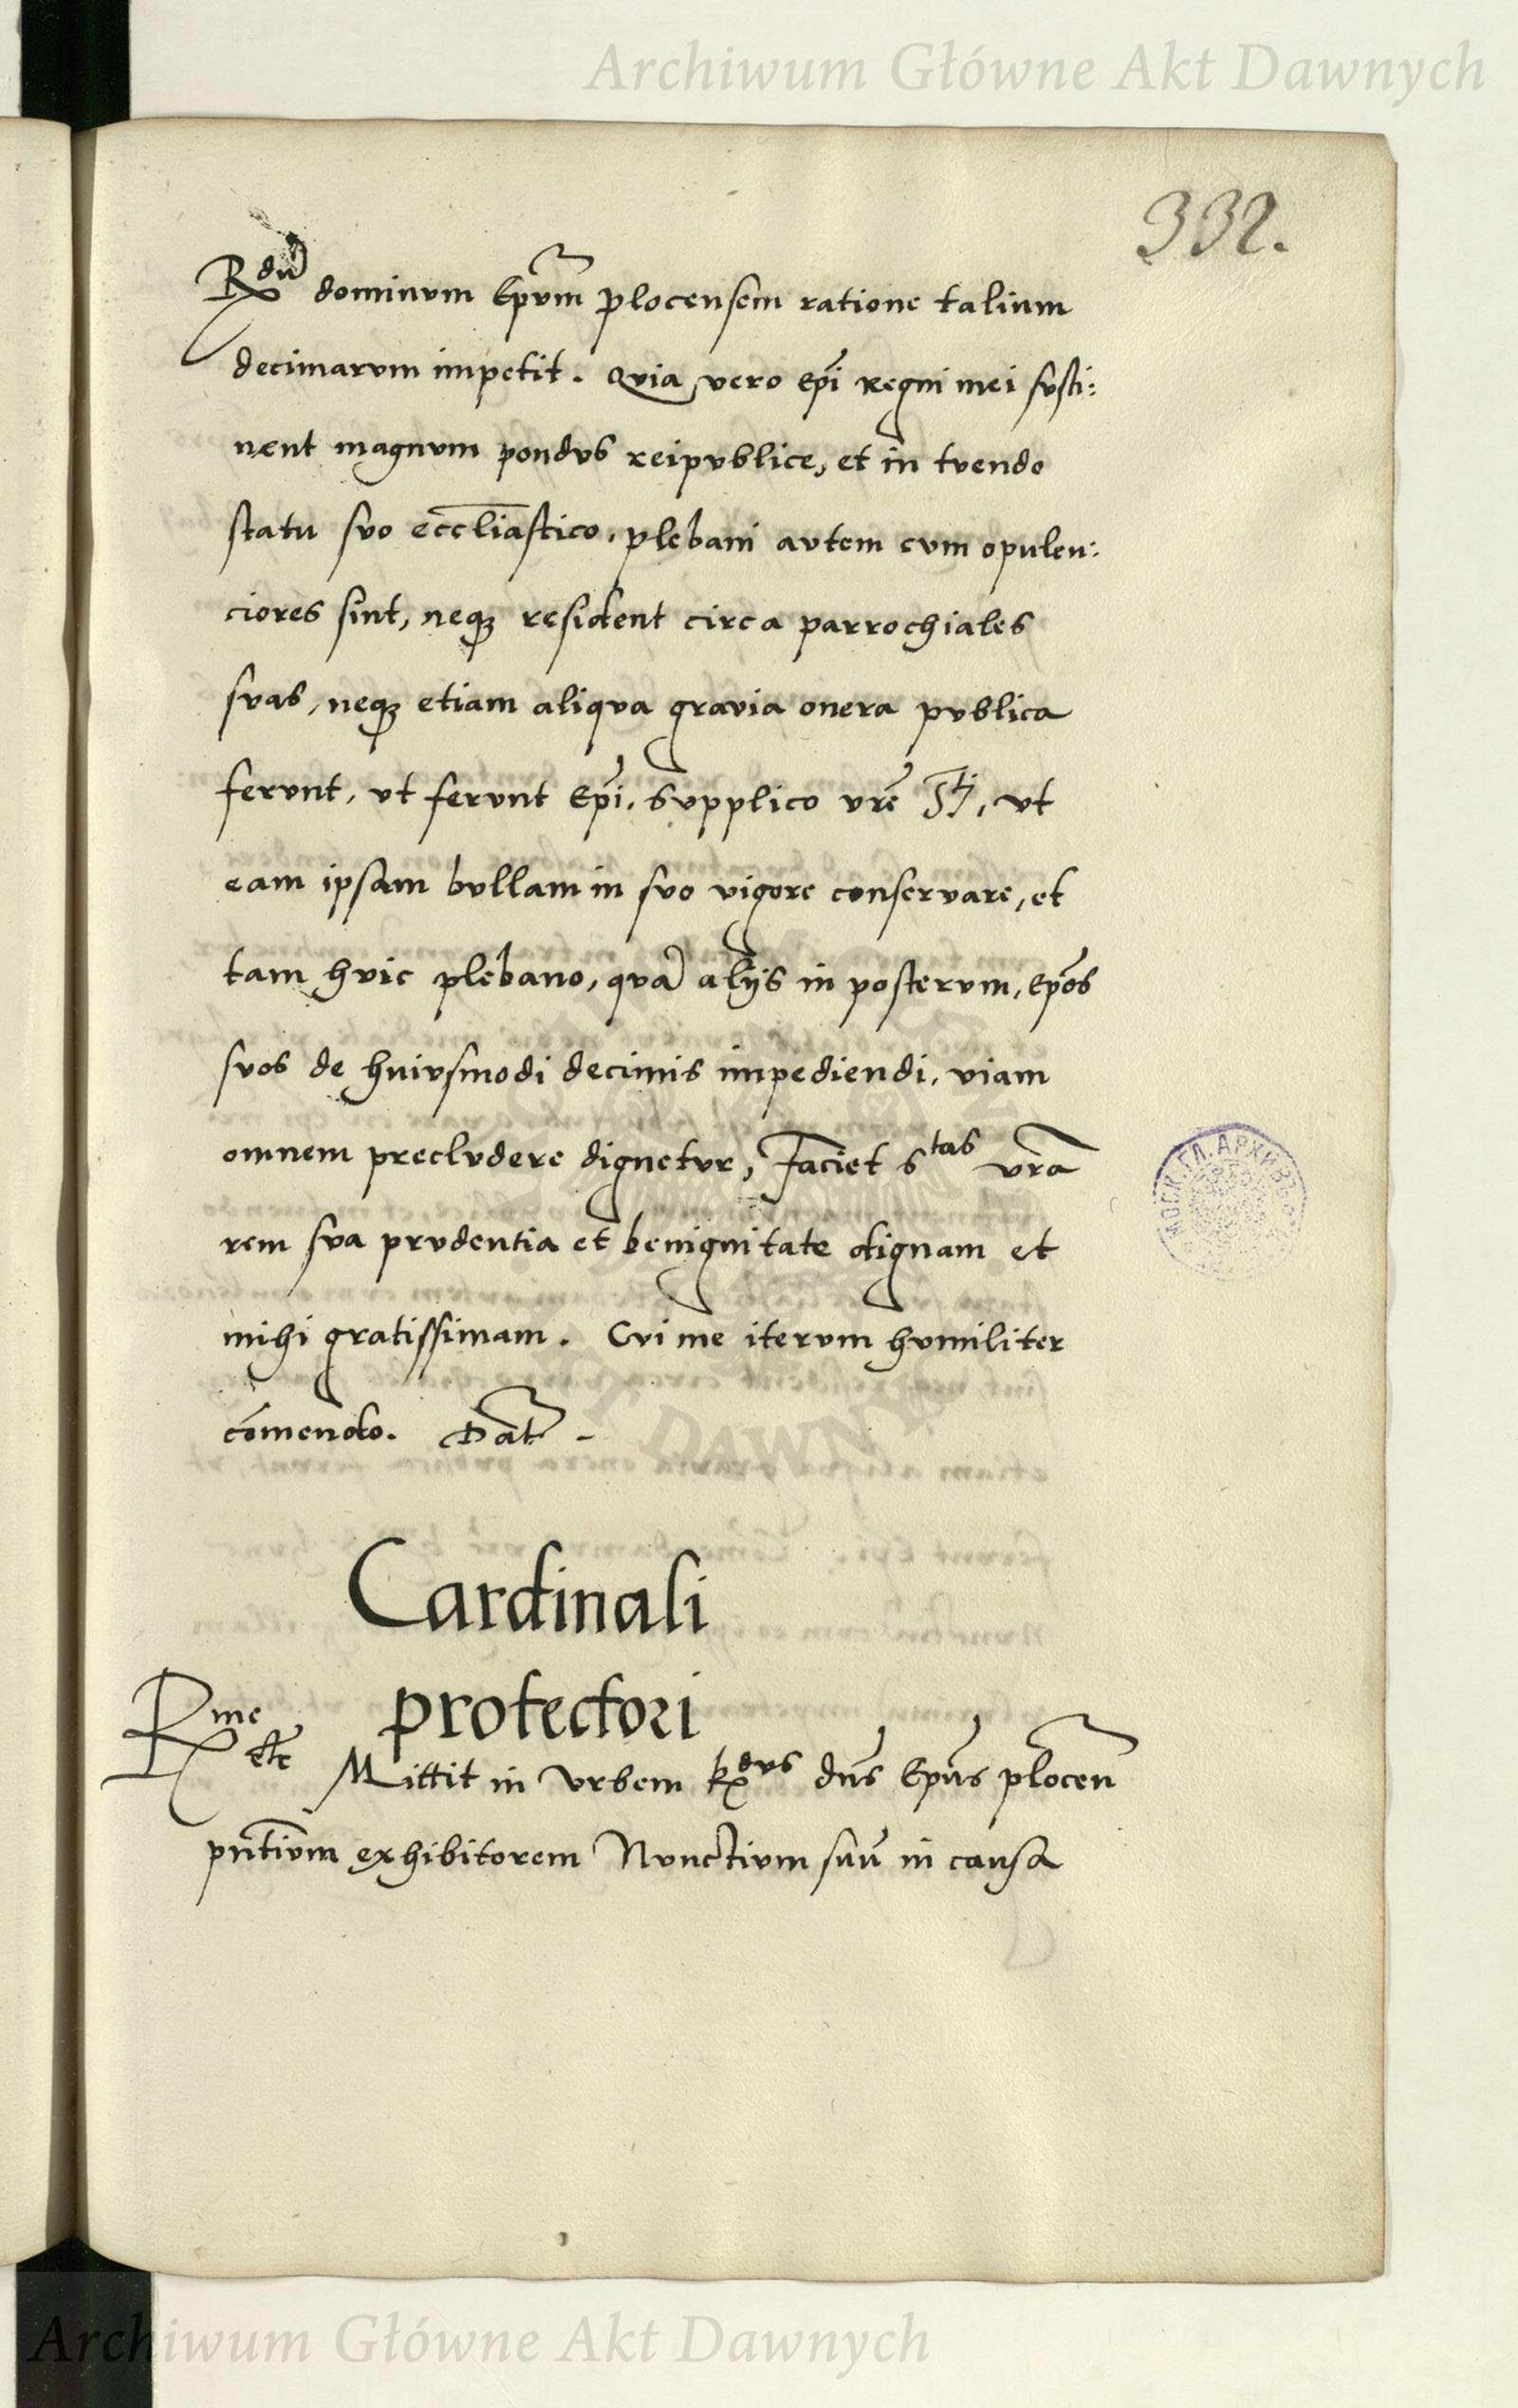 Archiwum Główne Akt Dawnych
332.
R^dũ dominvm Epvm̃ plocensem ratione talium
decimarvm impetit. Qvia vero ep̃i regni mei svsti:
nent magnvm pondvs reipvblice, et in tvendo
statu svo eccl̃iastico, plebani avtem cvm opulen:
ciores sint, neqȝ resident circa parrochiales
svas, neqȝ etiam aliqva gravia onera pvblica
fervnt, vt fervnt Ep̃i. Svpplico vr̃e S^ti, vt
eam ipsam bvllam in svo vigore conservare, et
tam hvic plebano, qvã alijs in postervm, ep̃os
svos de huivsmodi decimis impediendi, viam
omnem preclvdere dignetvr, Faciet S^tas vr̃a
rem sva prvdentia et benignitate dignam et
mihi gratissimam. Cvi me itervm hvmiliter
com̃endo. Dat̃ -
Cardinali
protectori
R^me etc̃ Mittit in vrbem R^dvs dñs Ep̃us plocen̄
pñtivm exhibitorem Nvnctivm suũ in causa
МОСК. ГЛ. АРХИВЪ
DAWNYCH
Archiwum Główne Akt Dawnych